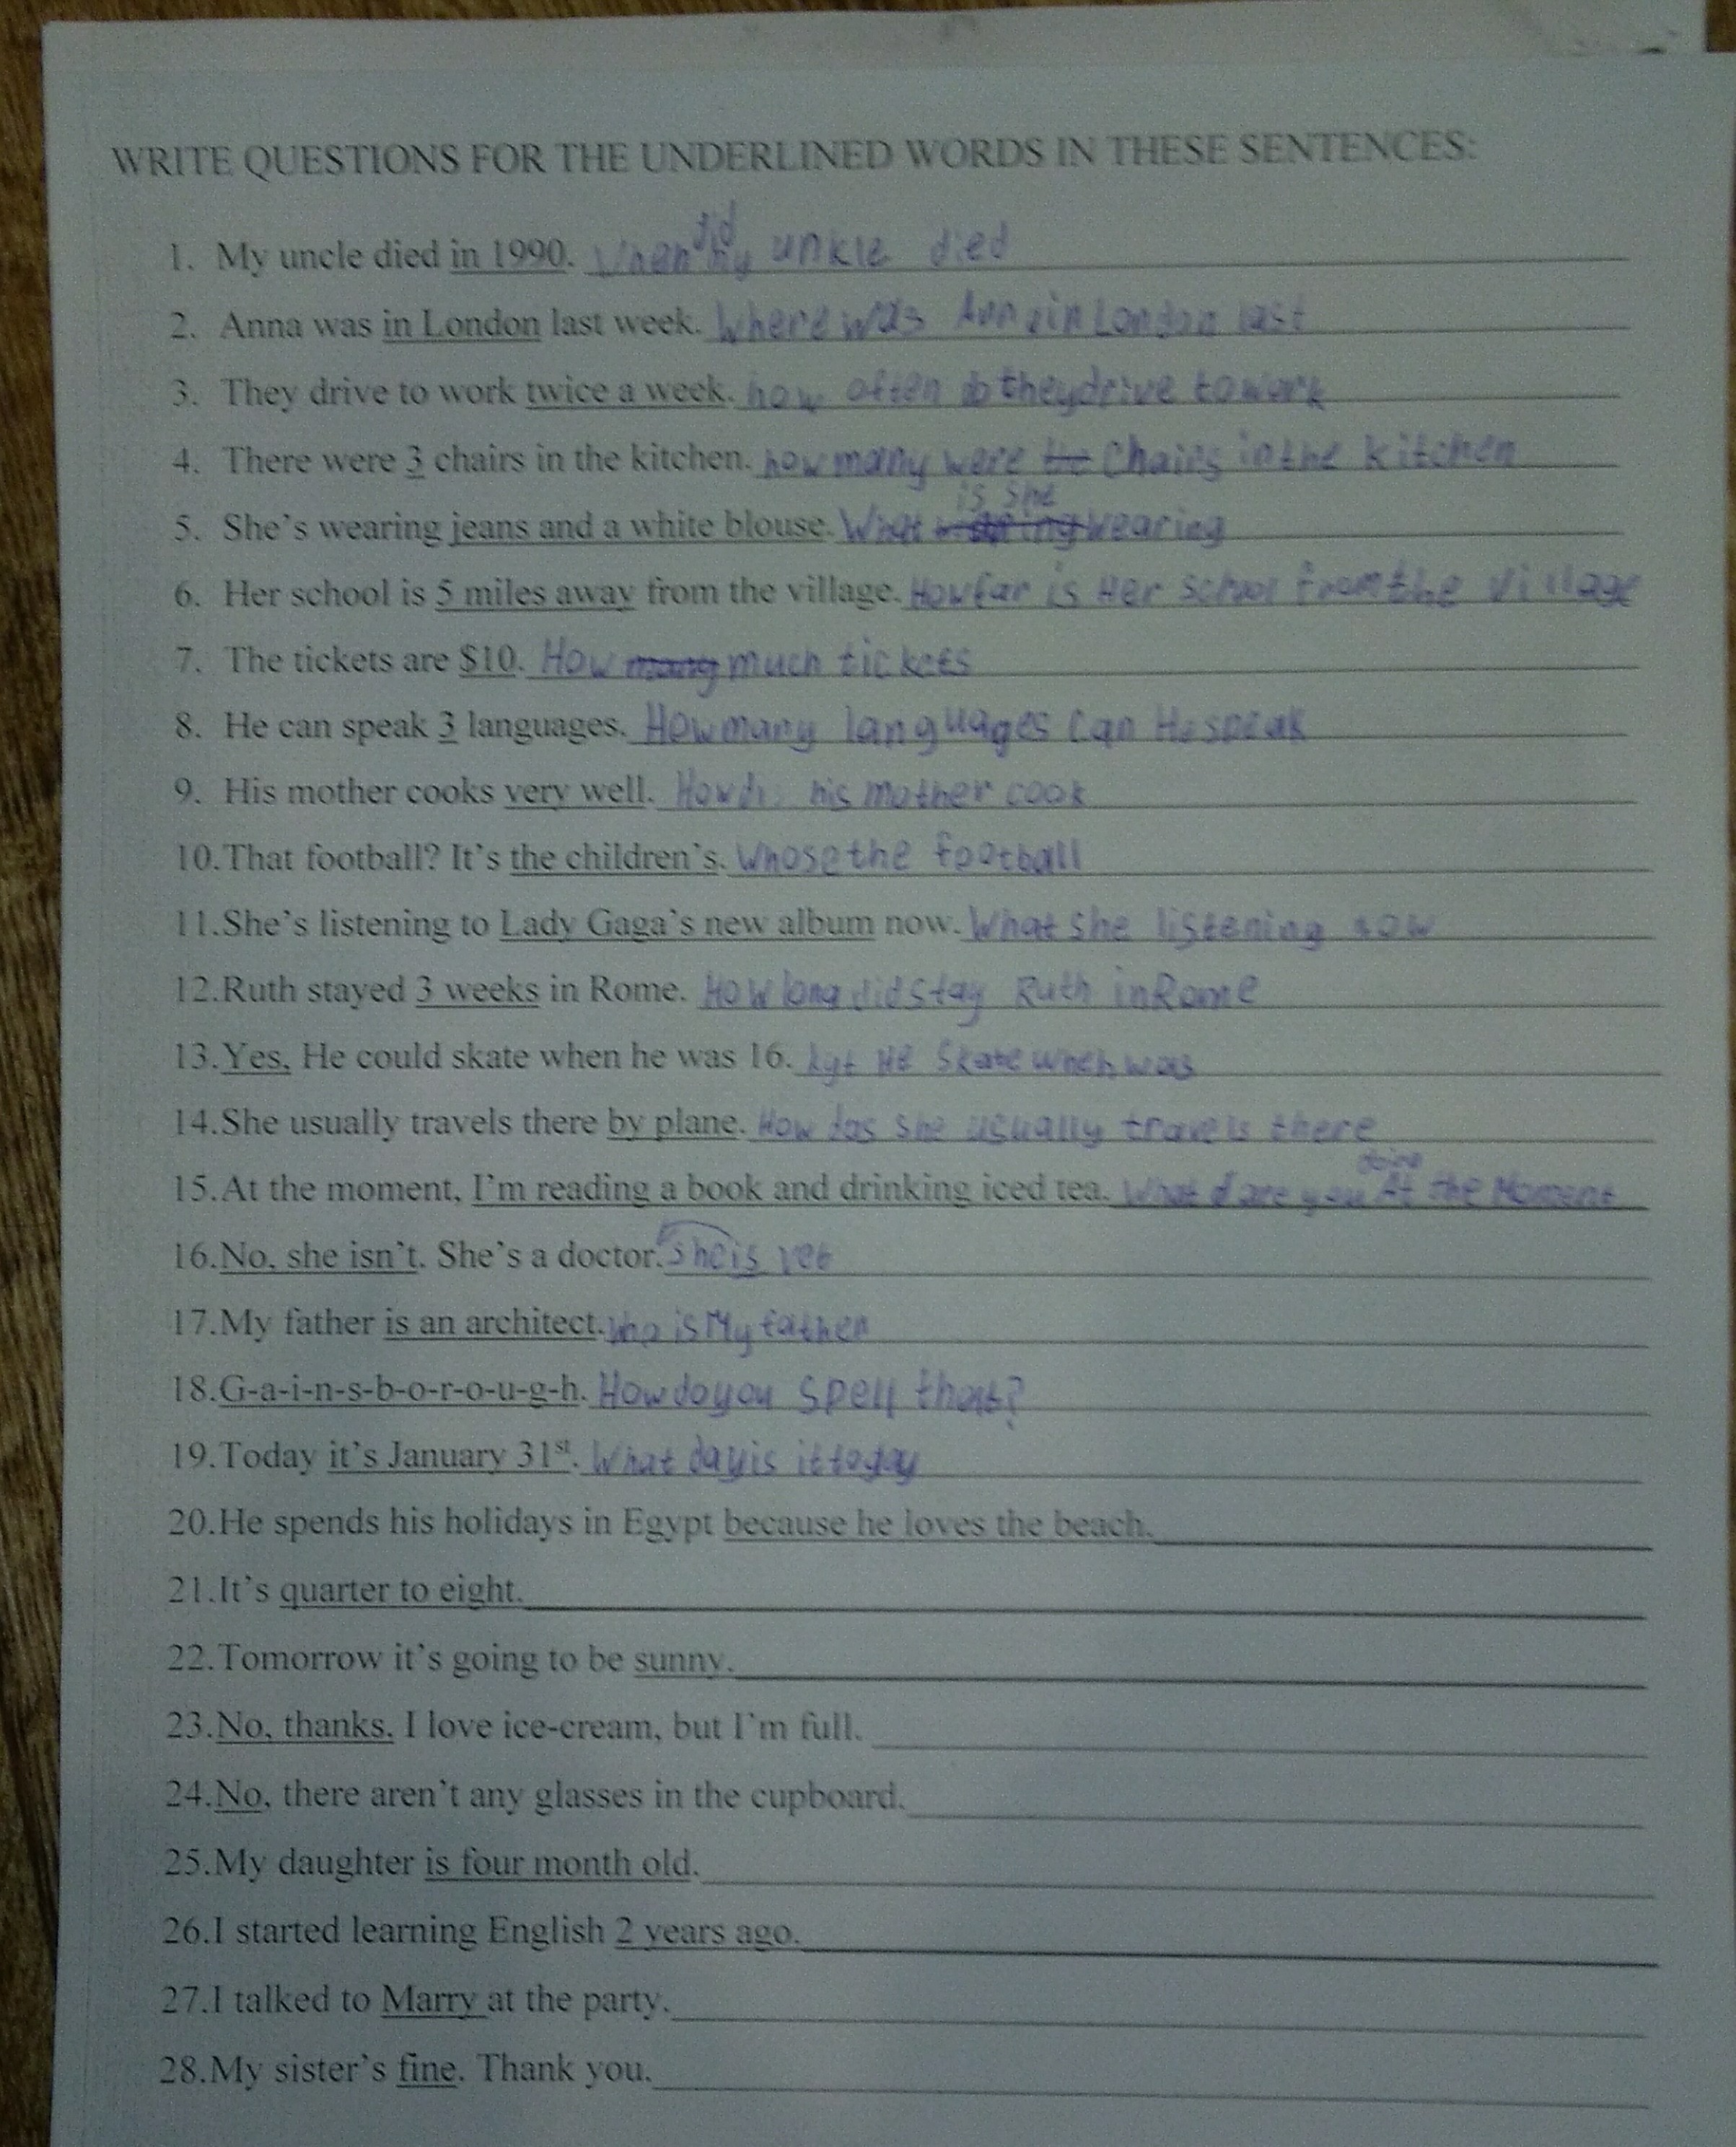 WRITE QUESTIONS FOR THE UNDERLINED WORDS IN THESE SENTENCES:
1. My uncle died in 1990. When did my unkle died
2. Anna was in London last week. Where was Anna in London last
3. They drive to work twice a week. how often do they drive to work
4. There were 3 chairs in the kitchen. how many were chairs in the kitchen
5. She's wearing jeans and a white blouse. What is she wearing
6. Her school is 5 miles away from the village. How far is Her school from the village
7. The tickets are $10. How many much tickets
8. He can speak 3 languages. How many languages can He speak
9. His mother cooks very well. How his mother cook
10.That football? It's the children's. Whose the football
11.She's listening to Lady Gaga's new album now. What she listening now
12.Ruth stayed 3 weeks in Rome. How long did stay Ruth in Rome
13.Yes, He could skate when he was 16. He skate when was
14.She usually travels there by plane. How das she usually travels there
15.At the moment, I'm reading a book and drinking iced tea. What are you doing At the Moment
16.No, she isn't. She's a doctor. she is vet
17.My father is an architect. who is My father
18.G-a-i-n-s-b-o-r-o-u-g-h. How do you spell that?
19.Today it's January 31st. What day is it today
20.He spends his holidays in Egypt because he loves the beach.
21.It's quarter to eight.
22.Tomorrow it's going to be sunny.
23.No, thanks. I love ice-cream, but I'm full.
24.No, there aren't any glasses in the cupboard.
25.My daughter is four month old.
26.I started learning English 2 years ago.
27.I talked to Marry at the party.
28.My sister's fine. Thank you.